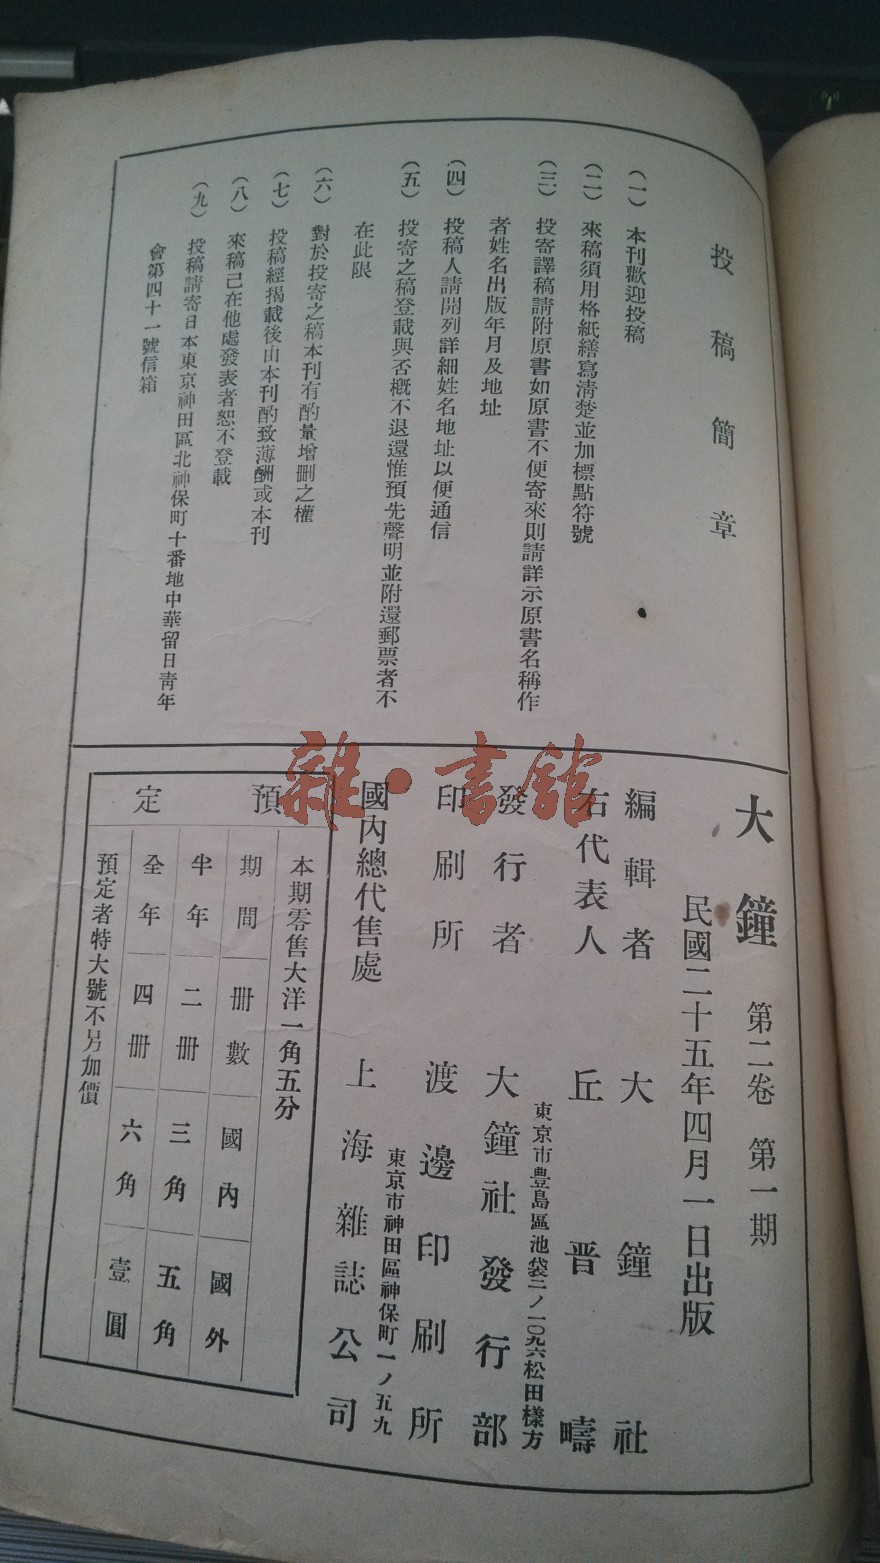 投稿簡章
(一) 本刊歡迎投稿
(二) 來稿須用格紙繕寫清楚並加標點符號
(三) 投寄譯稿請附原書如原書不便寄來則請詳示原書名稱作
者姓名出版年月及地址
(四) 投稿人請開列詳細姓名地址以便通信
(五) 投寄之稿登載與否概不退還惟預先聲明並附還郵票者不
在此限
(六) 對於投寄之稿本刊有酌量增刪之權
(七) 投稿經揭載後由本刊酌致薄酬或本刊
(八) 來稿已在他處發表者恕不登載
(九) 投稿請寄日本東京神田區北神保町十番地中華留日靑年
會第四十一號信箱
大鐘 第二卷 第一期
民國二十五年四月一日出版
編輯者 大鐘社
右代表人 丘晋疇
東京市豊島區池袋二ノ一〇九六松田樣方
發行者 大鐘社發行部
印刷所 渡邊印刷所
東京市神田區神保町一ノ五九
國內總代售處 上海雜誌公司
預定
本期零售大洋一角五分
期間 册數 國內 國外
半年 二册 三角 五角
全年 四册 六角 壹圓
預定者特大號不另加價
雜·書館